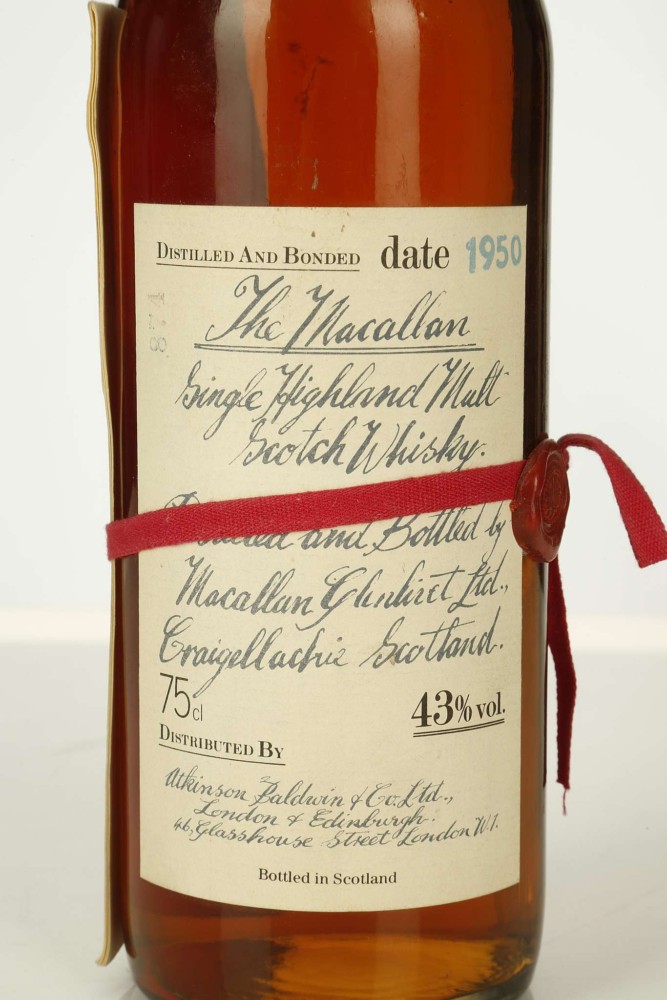 DISTILLED AND BONDED date 1950
874
The Macallan
Single Highland Malt
Scotch Whisky.
and Bottled by
Macallan Glenlivet Ltd.,
Craigellachie Scotland.
75cl
43% vol.
DISTRIBUTED BY
Atkinson Baldwin & Co. Ltd.,
London & Edinburgh.
46, Glasshouse Street London W.1.
Bottled in Scotland